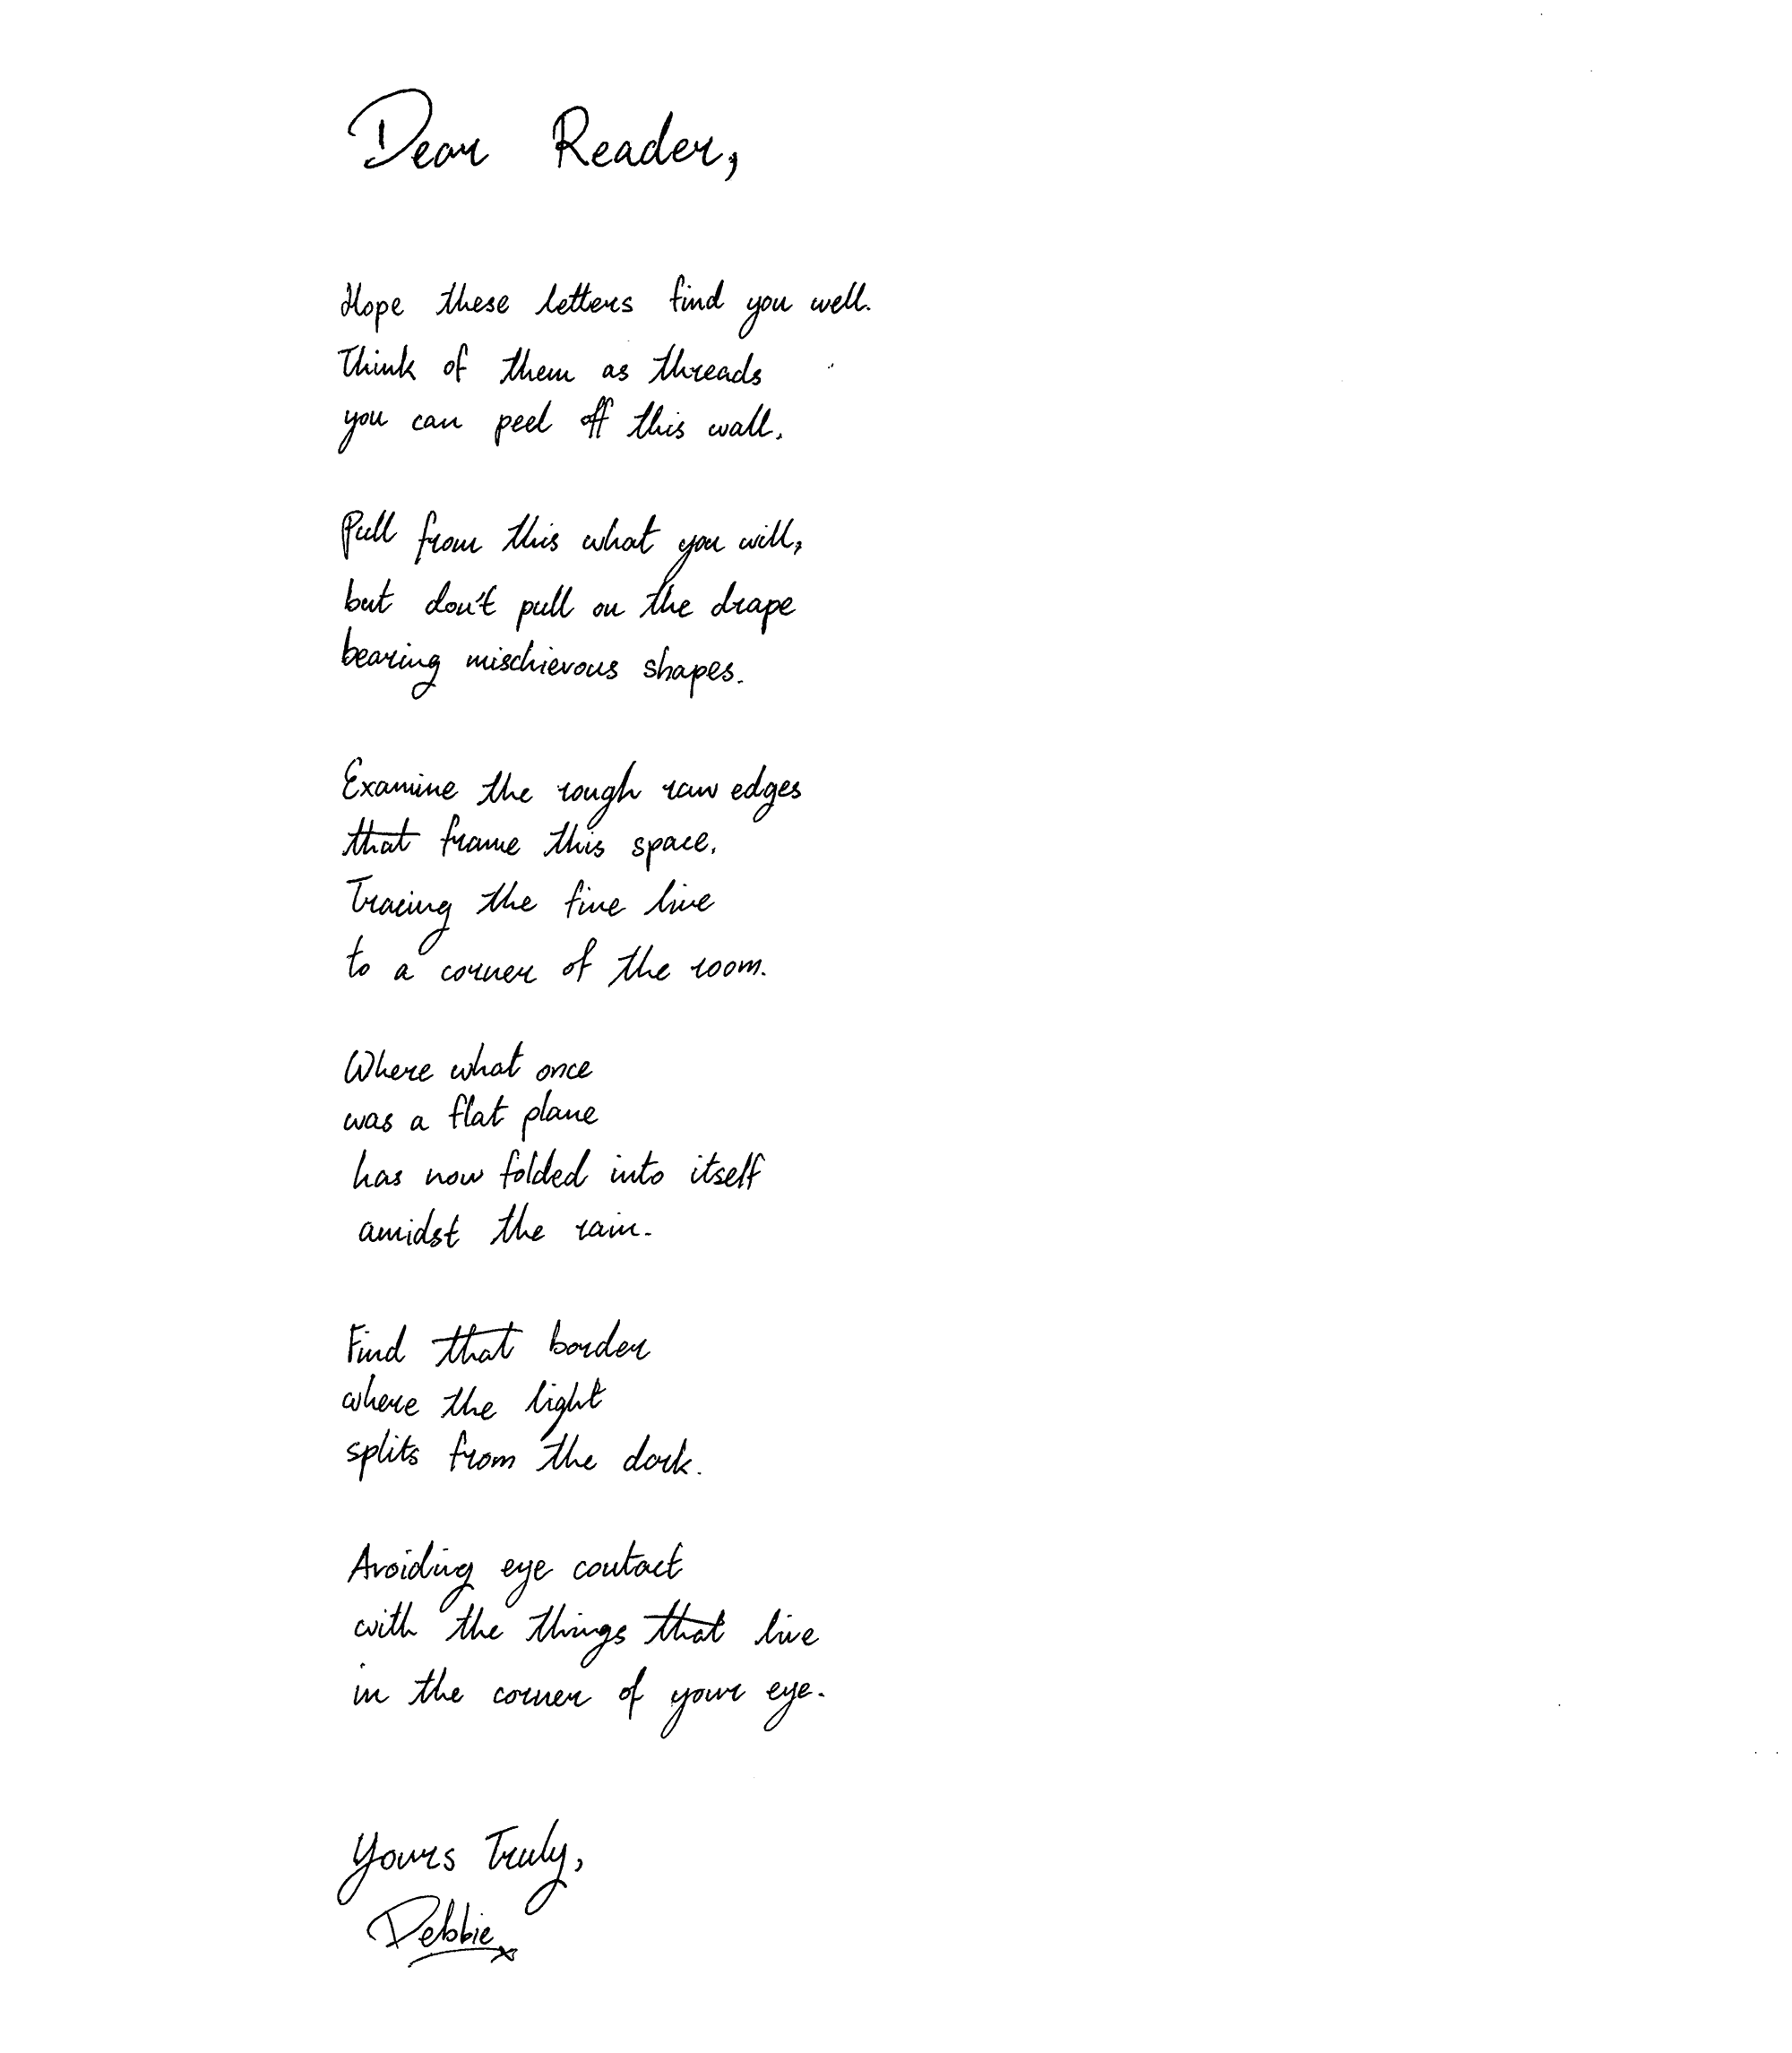 Dear Reader,
Hope these letters find you well.
Think of them as threads
you can peel off this wall.
Pull from this what you will,
but don't pull on the drape
bearing mischievous shapes.
Examine the rough raw edges
that frame this space.
Tracing the fine line
to a corner of the room.
Where what once
was a flat plane
has now folded into itself
amidst the rain.
Find that border
where the light
splits from the dark.
Avoiding eye contact
with the things that live
in the corner of your eye.
Yours Truly,
Debbie x